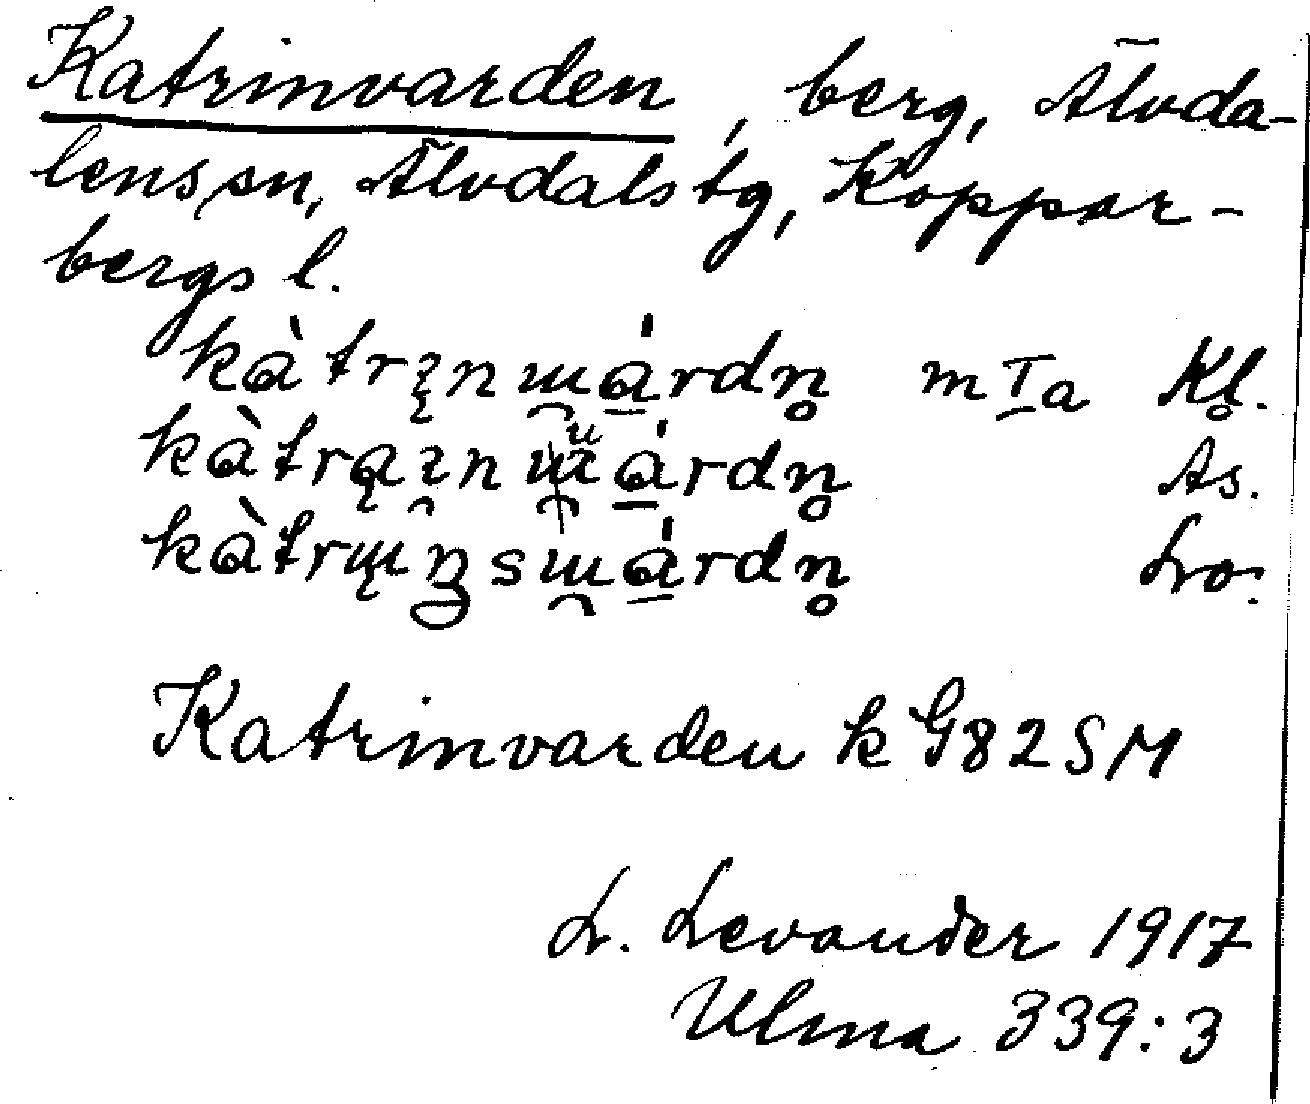 Katrinvarden, berg, Älvda-
lens sn, Älvdals tg, Koppar-
bergs l.
kàtrı̨nɯ̯á̱rdn̥ mI̱a Kl̥.
kàtrąı̯nu̯á̱rdn̥ Ås.
kàtrɯ̨ŋsɯ̯á̱rdn̥ Lo.
Katrinvarden k G82SM
L. Levander 1917
Ulma 339:3